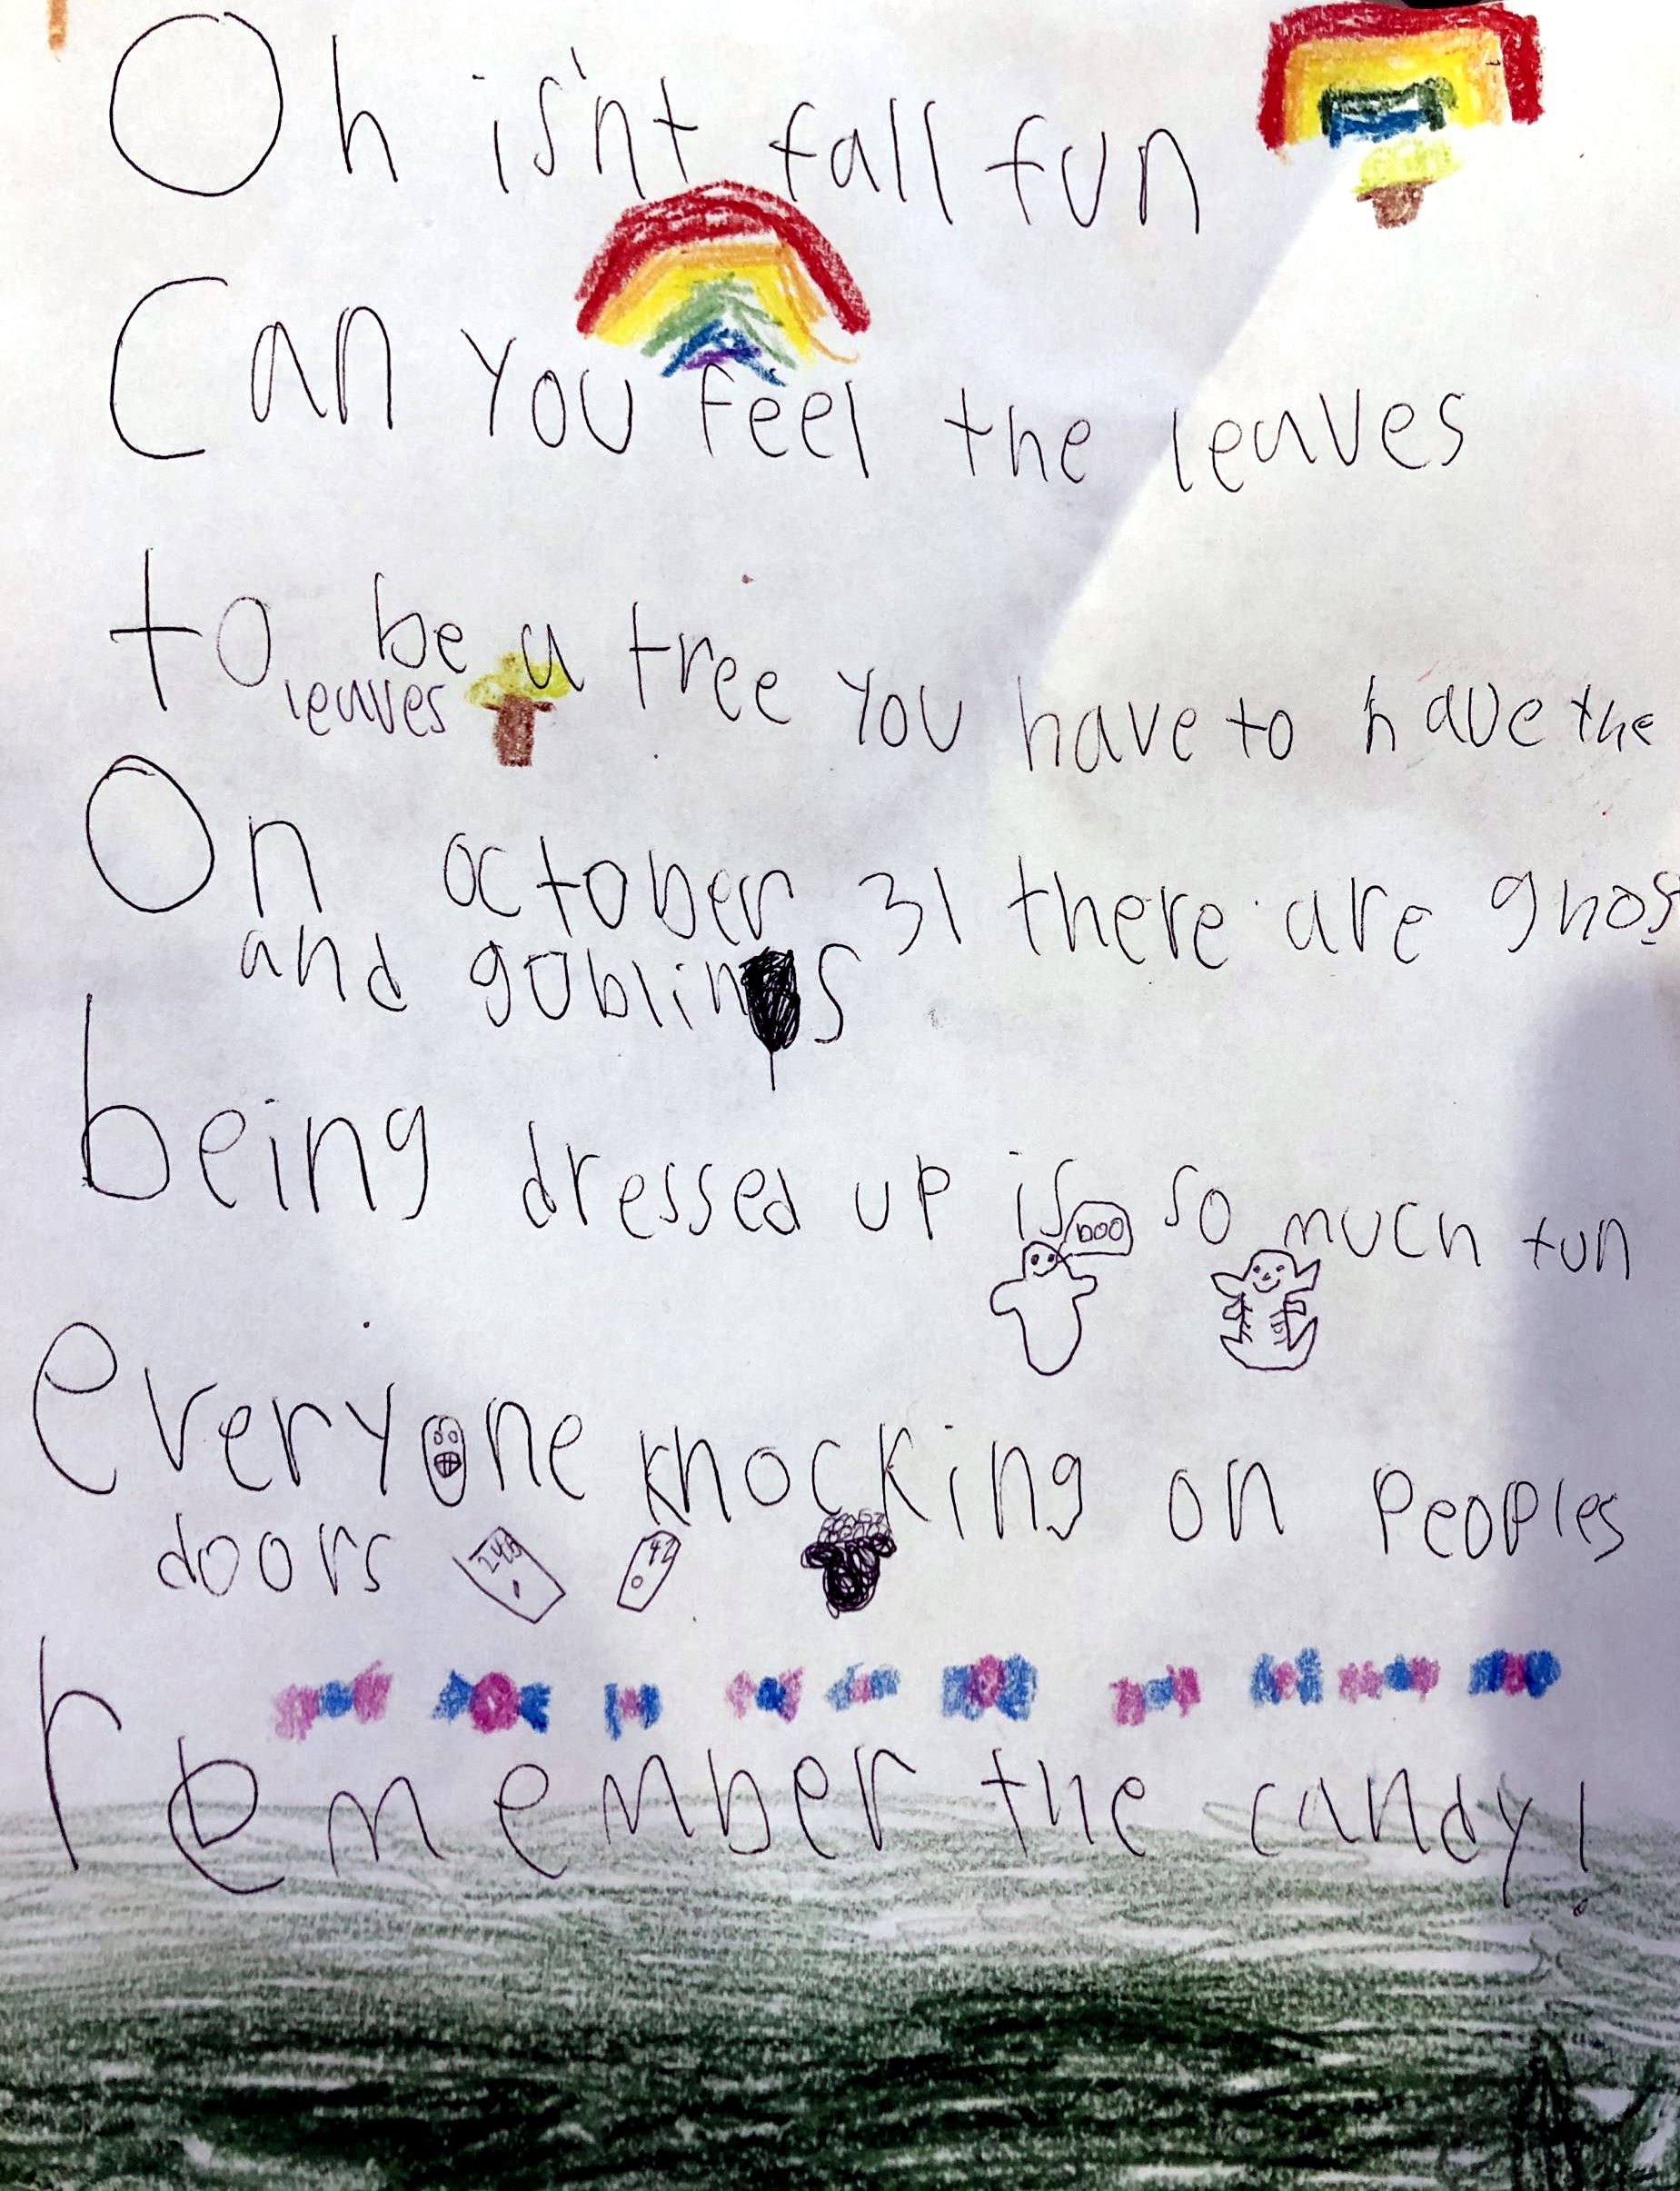 Oh is'nt fall fun
Can you feel the leaves
to be a tree you have to have the
leaves
On october 31 there are ghos
and goblins
being dressed up is so much fun
boo
everyone knocking on peoples
doors
42
remember the candy!